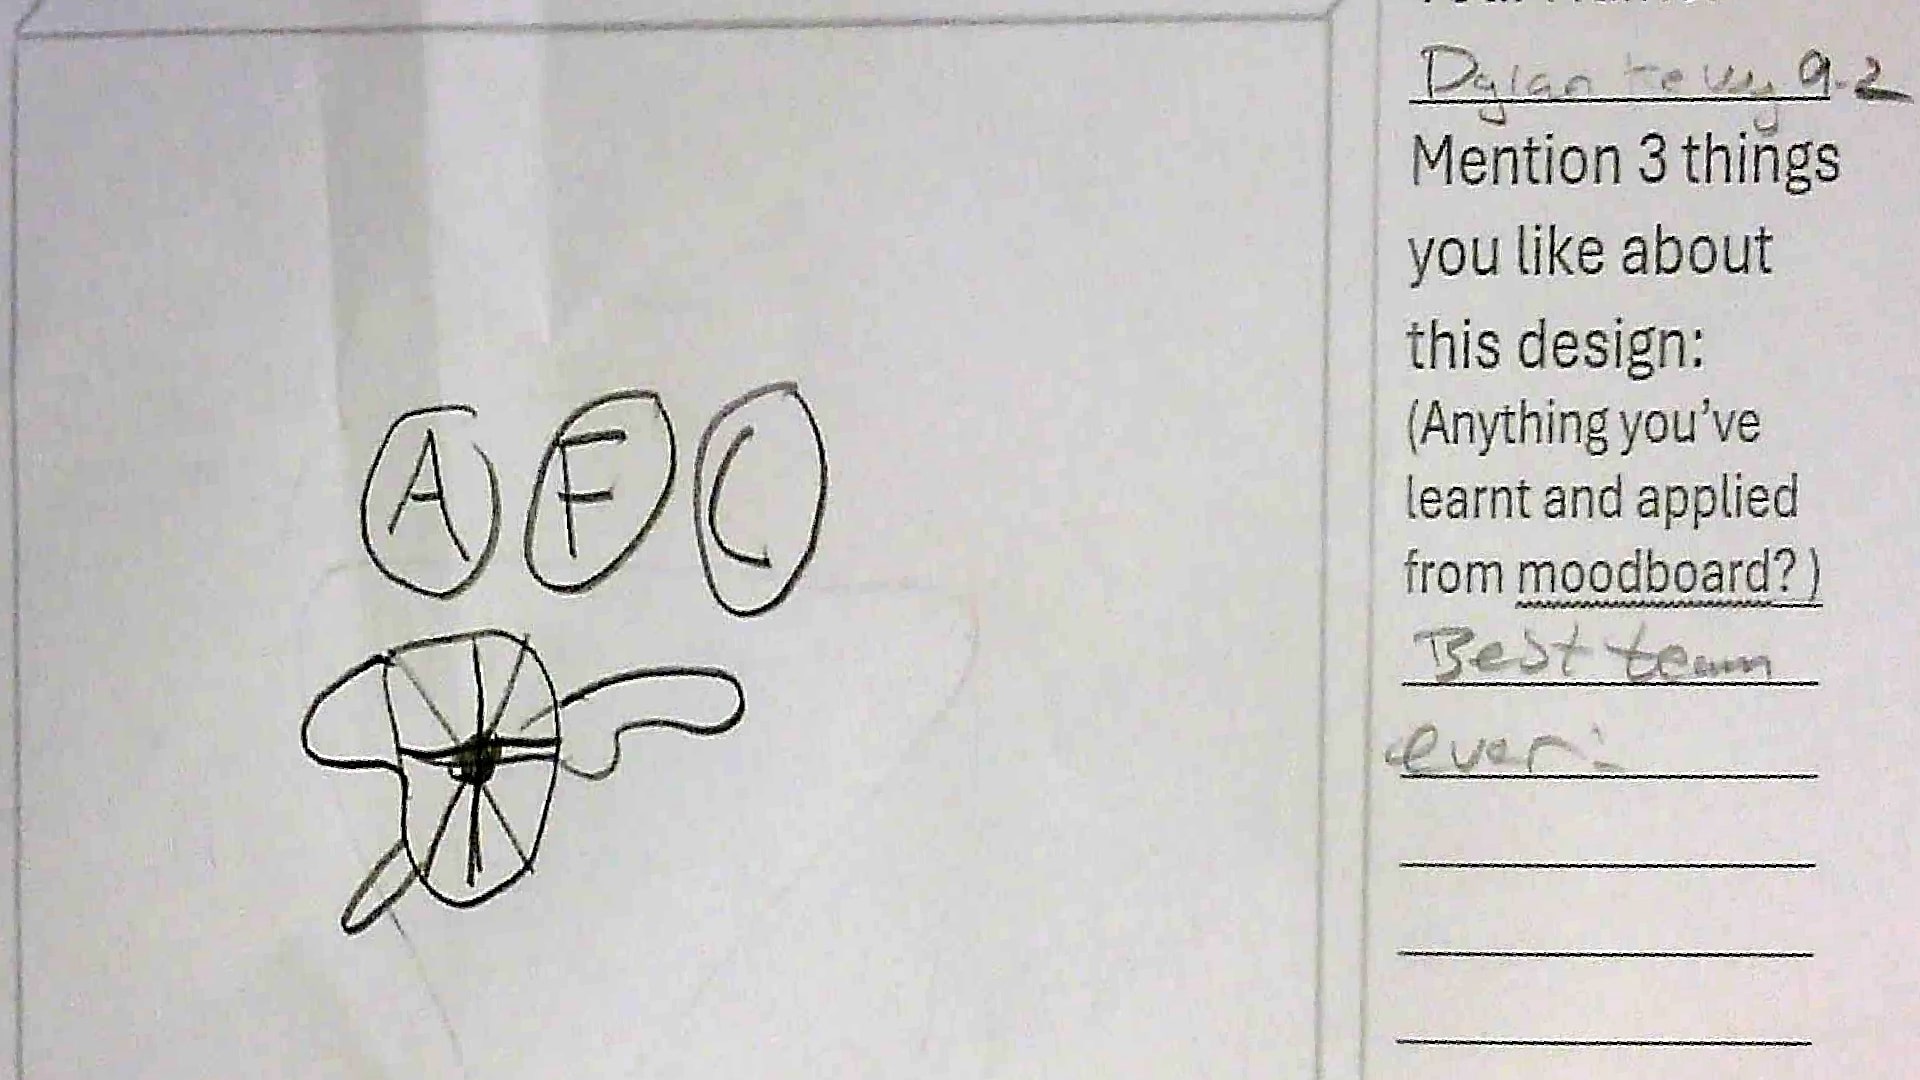 A F C
Dylan 9-2
Mention 3 things
you like about
this design:
(Anything you've
learnt and applied
from moodboard?)
Best team
ever